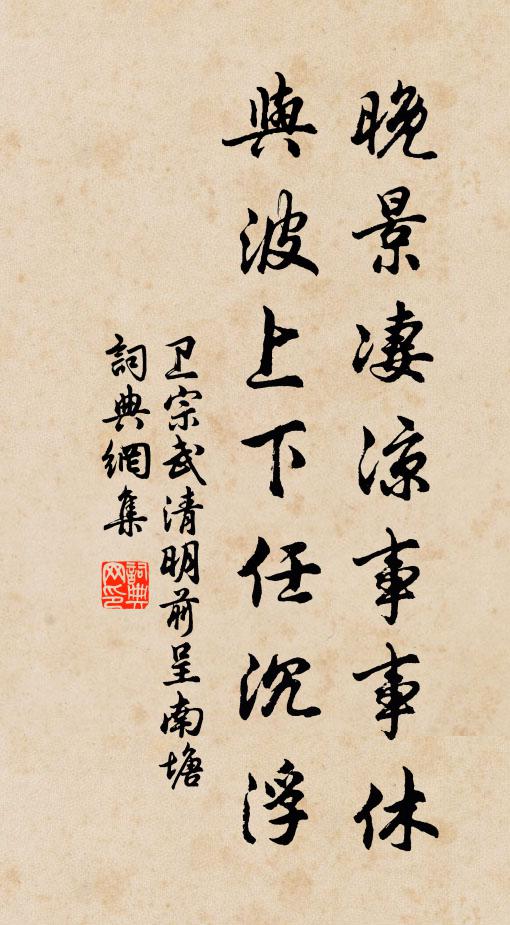 晚景凄凉事事休
與波上下任沉浮
卫宗武清明前呈南塘
詞典網集
詞典网印